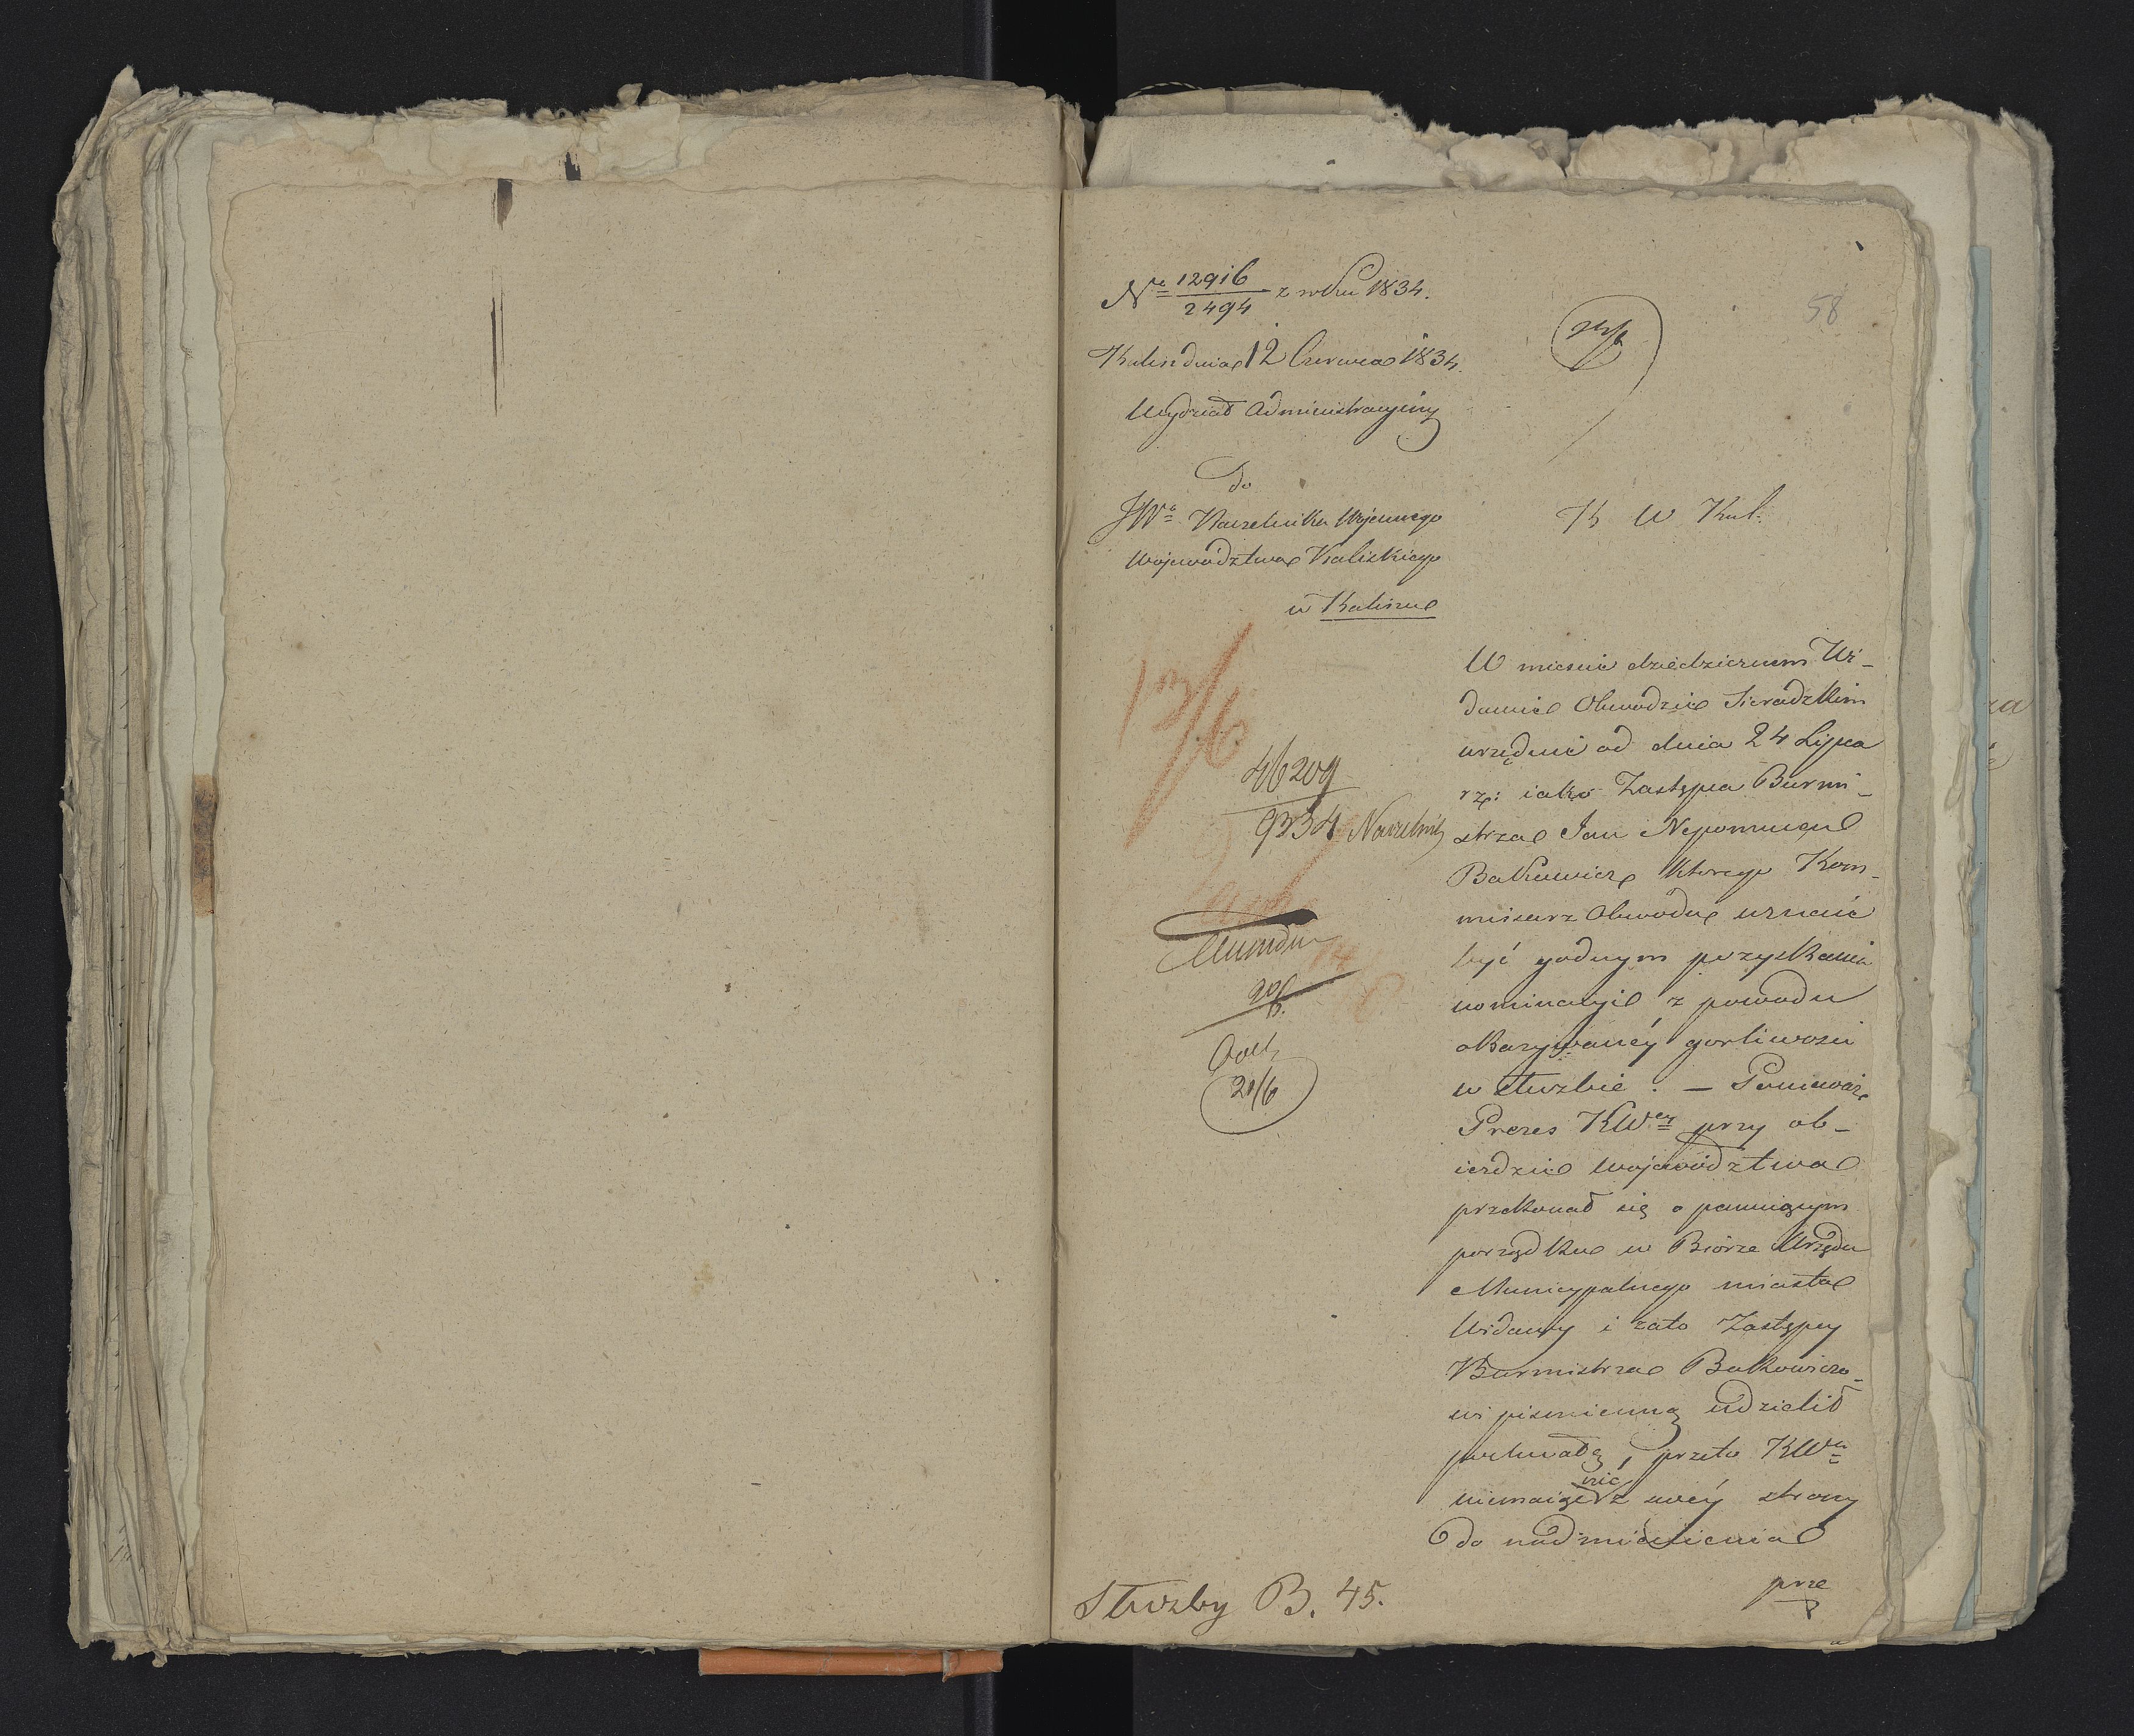 58
Nro 12916/2494 z roku 1834.
Kalisz dnia 12 Czerwca 1834.
Wydział Administracyiny
do
JWo Naczelnika Wojennego
Województwa Kaliskiego
w Kaliszu
K W Kal:
13/6
46209
9334 Naczelnik
Mundm
20/6.
20/6
W mieście dziedzicznem Wi-
dawie Obwodzie Sieradzkim
urzęduie od dnia 24 Lipca
rz: iako Zastępca Burmi-
strza Jan Nepomucen
Batkiewicz ktorego Kom-
missarz Obwodu uznaie
być godnym pozyskania
nominacyi z powodu
okazywanéy gorliwości
w służbie. — Ponieważ
Prezes KWey przy ob-
ieździe województwa
przekonał się o panuiącym
porządku w Biórze Urzędu
Municypalnego miasta
Widawy i zato Zastępcy
Burmistrza Batkowiczo-
wi piśmienną udzielił
pochwałę, przeto KWa
niemaiąc nic z swéy strony
do nadmienienia
prze
Służby B. 45.